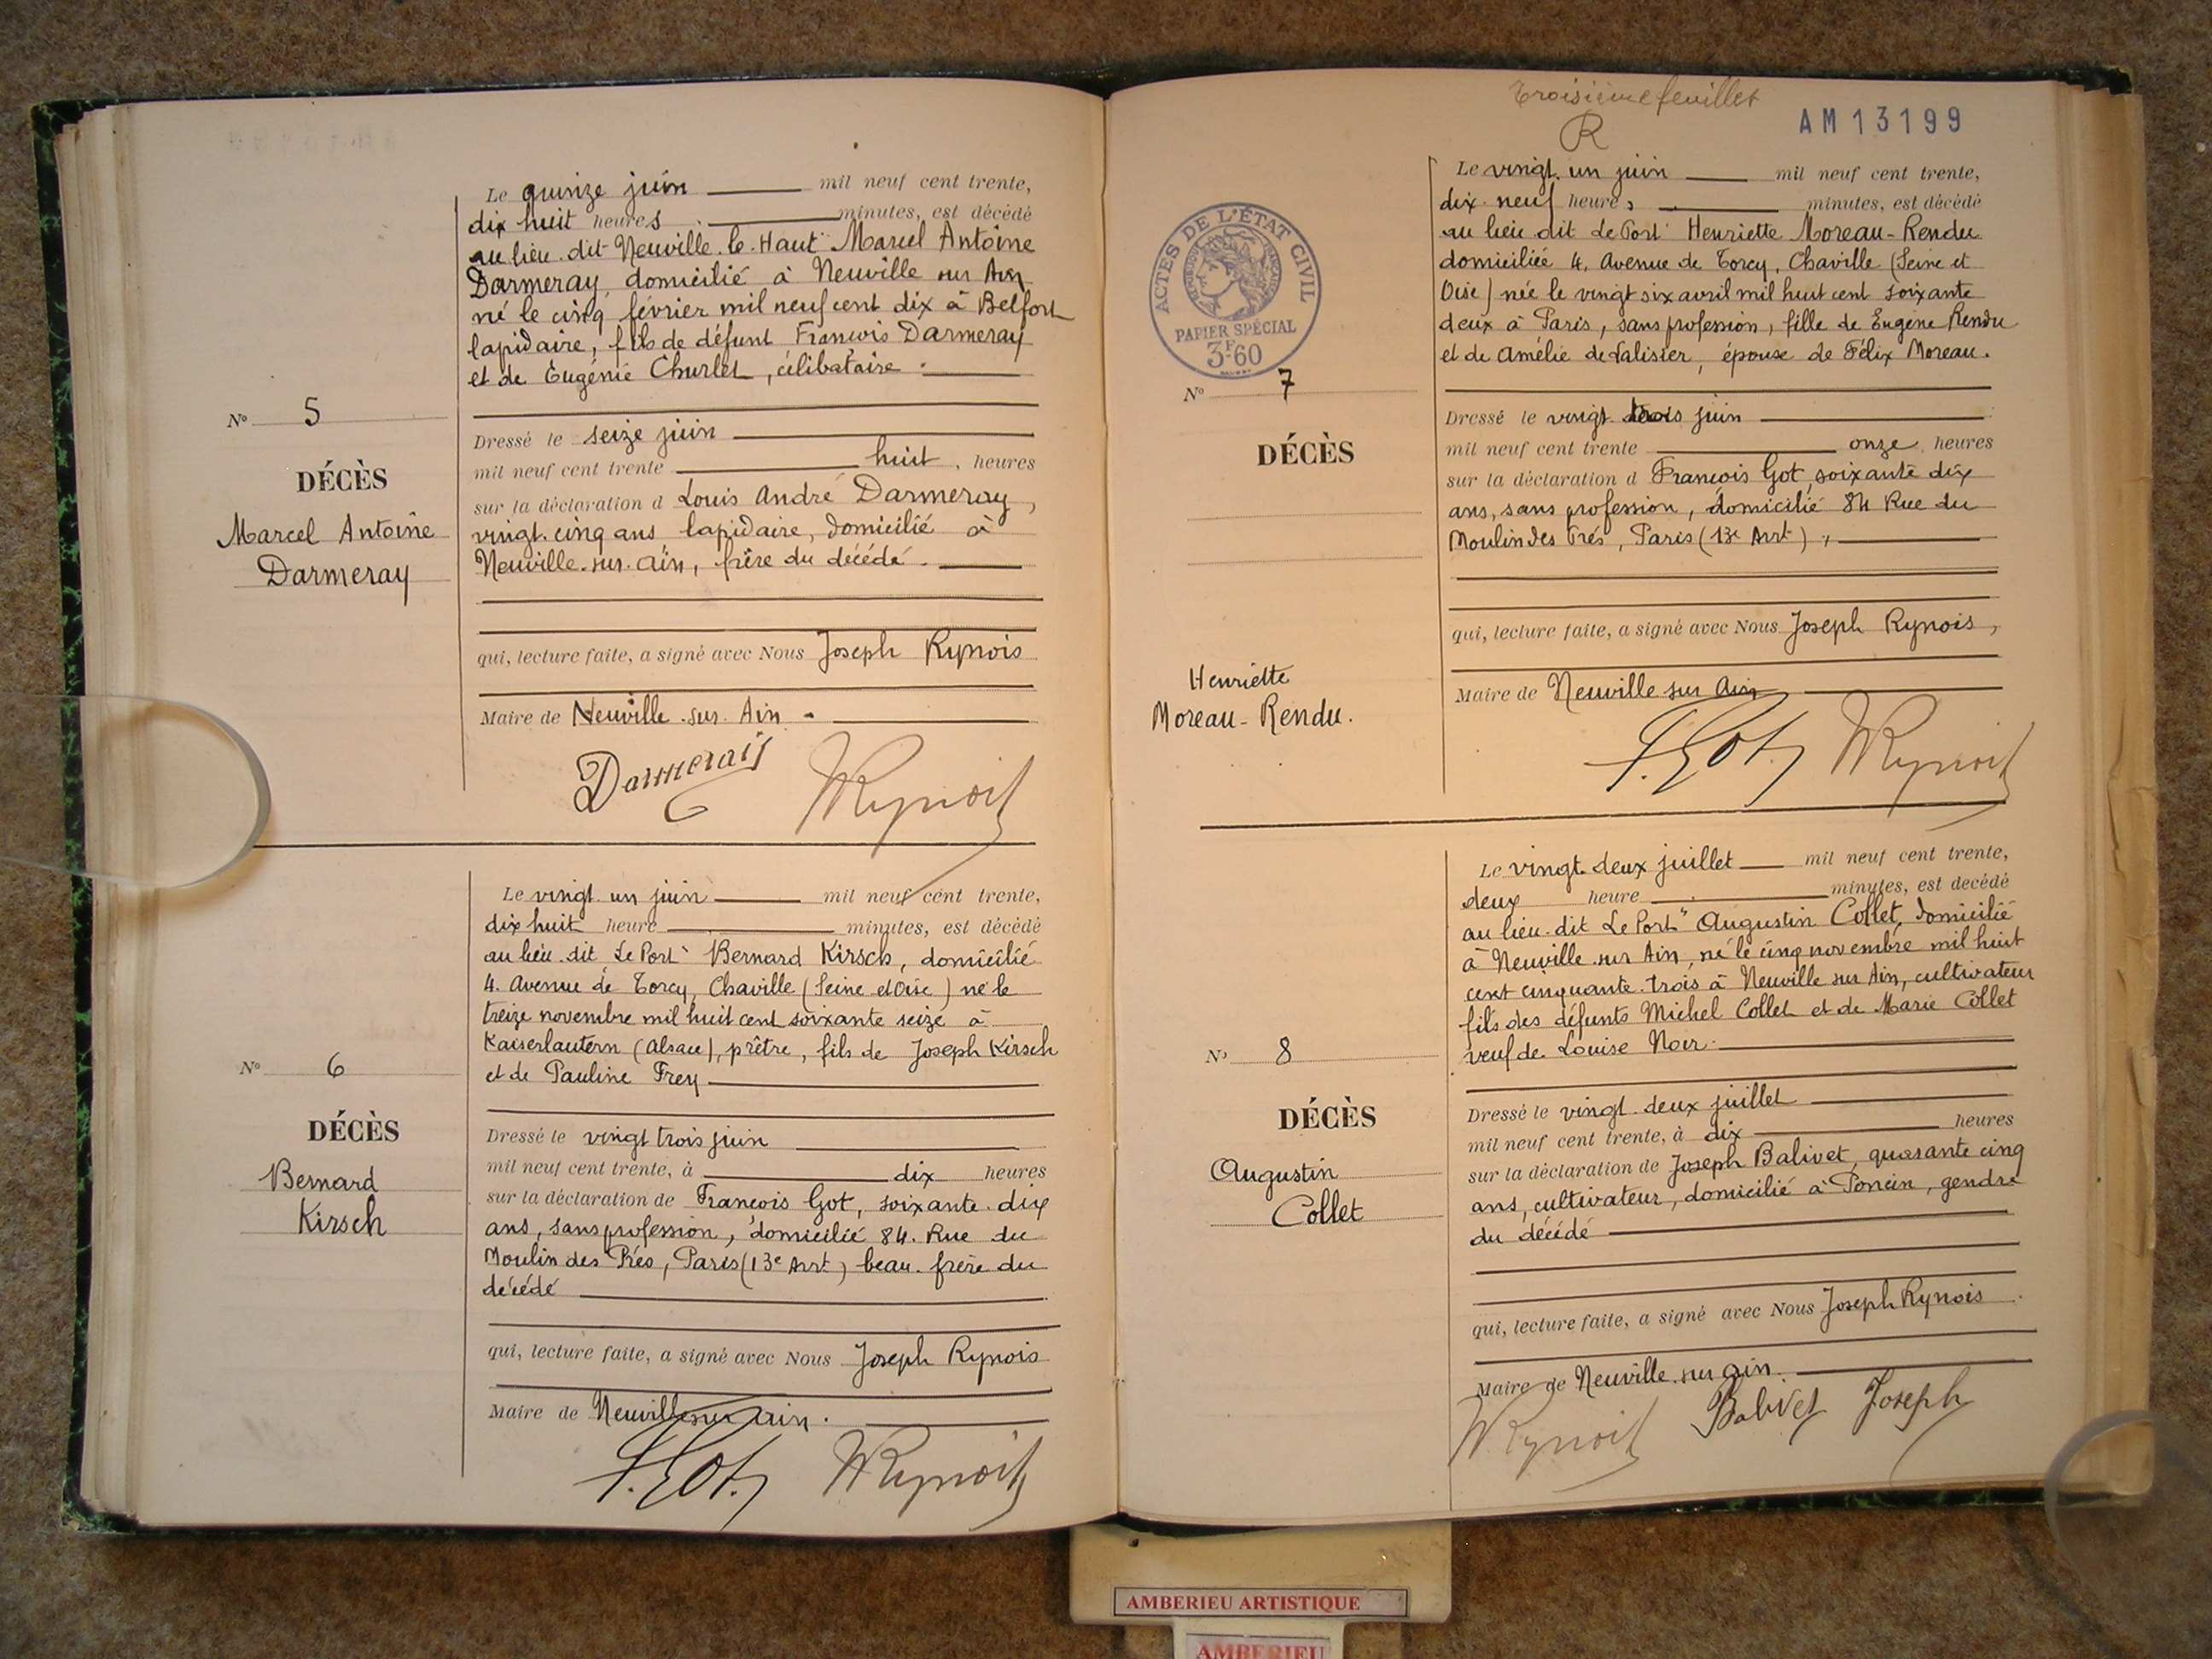 Le quinze juin mil neuf cent trente,
dix huit heures minutes, est décédé
au lieu dit "Neuville-le-Haut" Marcel Antoine
Darmeray, domicilié à Neuville sur Ain
né le cinq février mil neuf cent dix à Belfort
lapidaire, fils de défunt François Darmeray
et de Eugénie Churlet, célibataire.
N° 5
DÉCÈS
Marcel Antoine
Darmeray
Dressé le seize juin
mil neuf cent trente huit, heures
sur la déclaration d Louis André Darmeray,
vingt-cinq ans lapidaire, domicilié à
Neuville-sur-Ain, frère du décédé.
qui, lecture faite, a signé avec Nous Joseph Rynois
Maire de Neuville-sur-Ain.
Darmerais Rynois
Le vingt un juin mil neuf cent trente,
dix huit heure minutes, est décédé
au lieu dit "Le Port" Bernard Kirsch, domicilié
4. Avenue de Torcy, Chaville (Seine et Oise) né le
treize novembre mil huit cent soixante seize à
Kaiserlautern (Alsace), prêtre, fils de Joseph Kirsch
et de Pauline Frey
N° 6
DÉCÈS
Bernard
Kirsch
Dressé le vingt trois juin
mil neuf cent trente, à dix heures
sur la déclaration de François Got, soixante-dix
ans, sans profession, domicilié 84. Rue du
Moulin des Prés, Paris (13e Arrt) beau-frère du
décédé
qui, lecture faite, a signé avec Nous Joseph Rynois
Maire de Neuville sur Ain.
F. Got. Rynois
Troisième feuillet
R
AM13199
ACTES DE L'ÉTAT CIVIL
RÉPUBLIQUE FRANÇAISE
PAPIER SPÉCIAL
3F60
Le vingt-un juin mil neuf cent trente,
dix-neuf heures minutes, est décédé
au lieu dit "Le Port" Henriette Moreau-Rendu
domiciliée 4, Avenue de Torcy, Chaville (Seine et
Oise) née le vingt six avril mil huit cent soixante
deux à Paris, sans profession, fille de Eugène Rendu
et de Amélie de , épouse de Félix Moreau.
N° 7
DÉCÈS
Henriette
Moreau-Rendu.
Dressé le vingt trois juin
mil neuf cent trente onze heures
sur la déclaration d François Got, soixante dix
ans, sans profession, domicilié 84 Rue du
Moulin des Prés, Paris (13e Arrt),
qui, lecture faite, a signé avec Nous Joseph Rynois,
Maire de Neuville sur Ain
F. Got. Rynois
Le vingt-deux juillet mil neuf cent trente,
deux heure minutes, est decédé
au lieu-dit "Le Port" Augustin Collet, domicilié
à Neuville sur Ain, né le cinq novembre mil huit
cent cinquante-trois à Neuville sur Ain, cultivateur
fils des défunts Michel Collet et de Marie Collet
veuf de Louise Noir.
N° 8
DÉCÈS
Augustin
Collet
Dressé le vingt-deux juillet
mil neuf cent trente, à dix heures
sur la déclaration de Joseph Balivet, quarante cinq
ans, cultivateur, domicilié à Poncin, gendre
du décédé
qui, lecture faite, a signé avec Nous Joseph Rynois.
Maire de Neuville-sur-Ain.
Rynois Balivet Joseph
AMBERIEU ARTISTIQUE
AMBERIEU